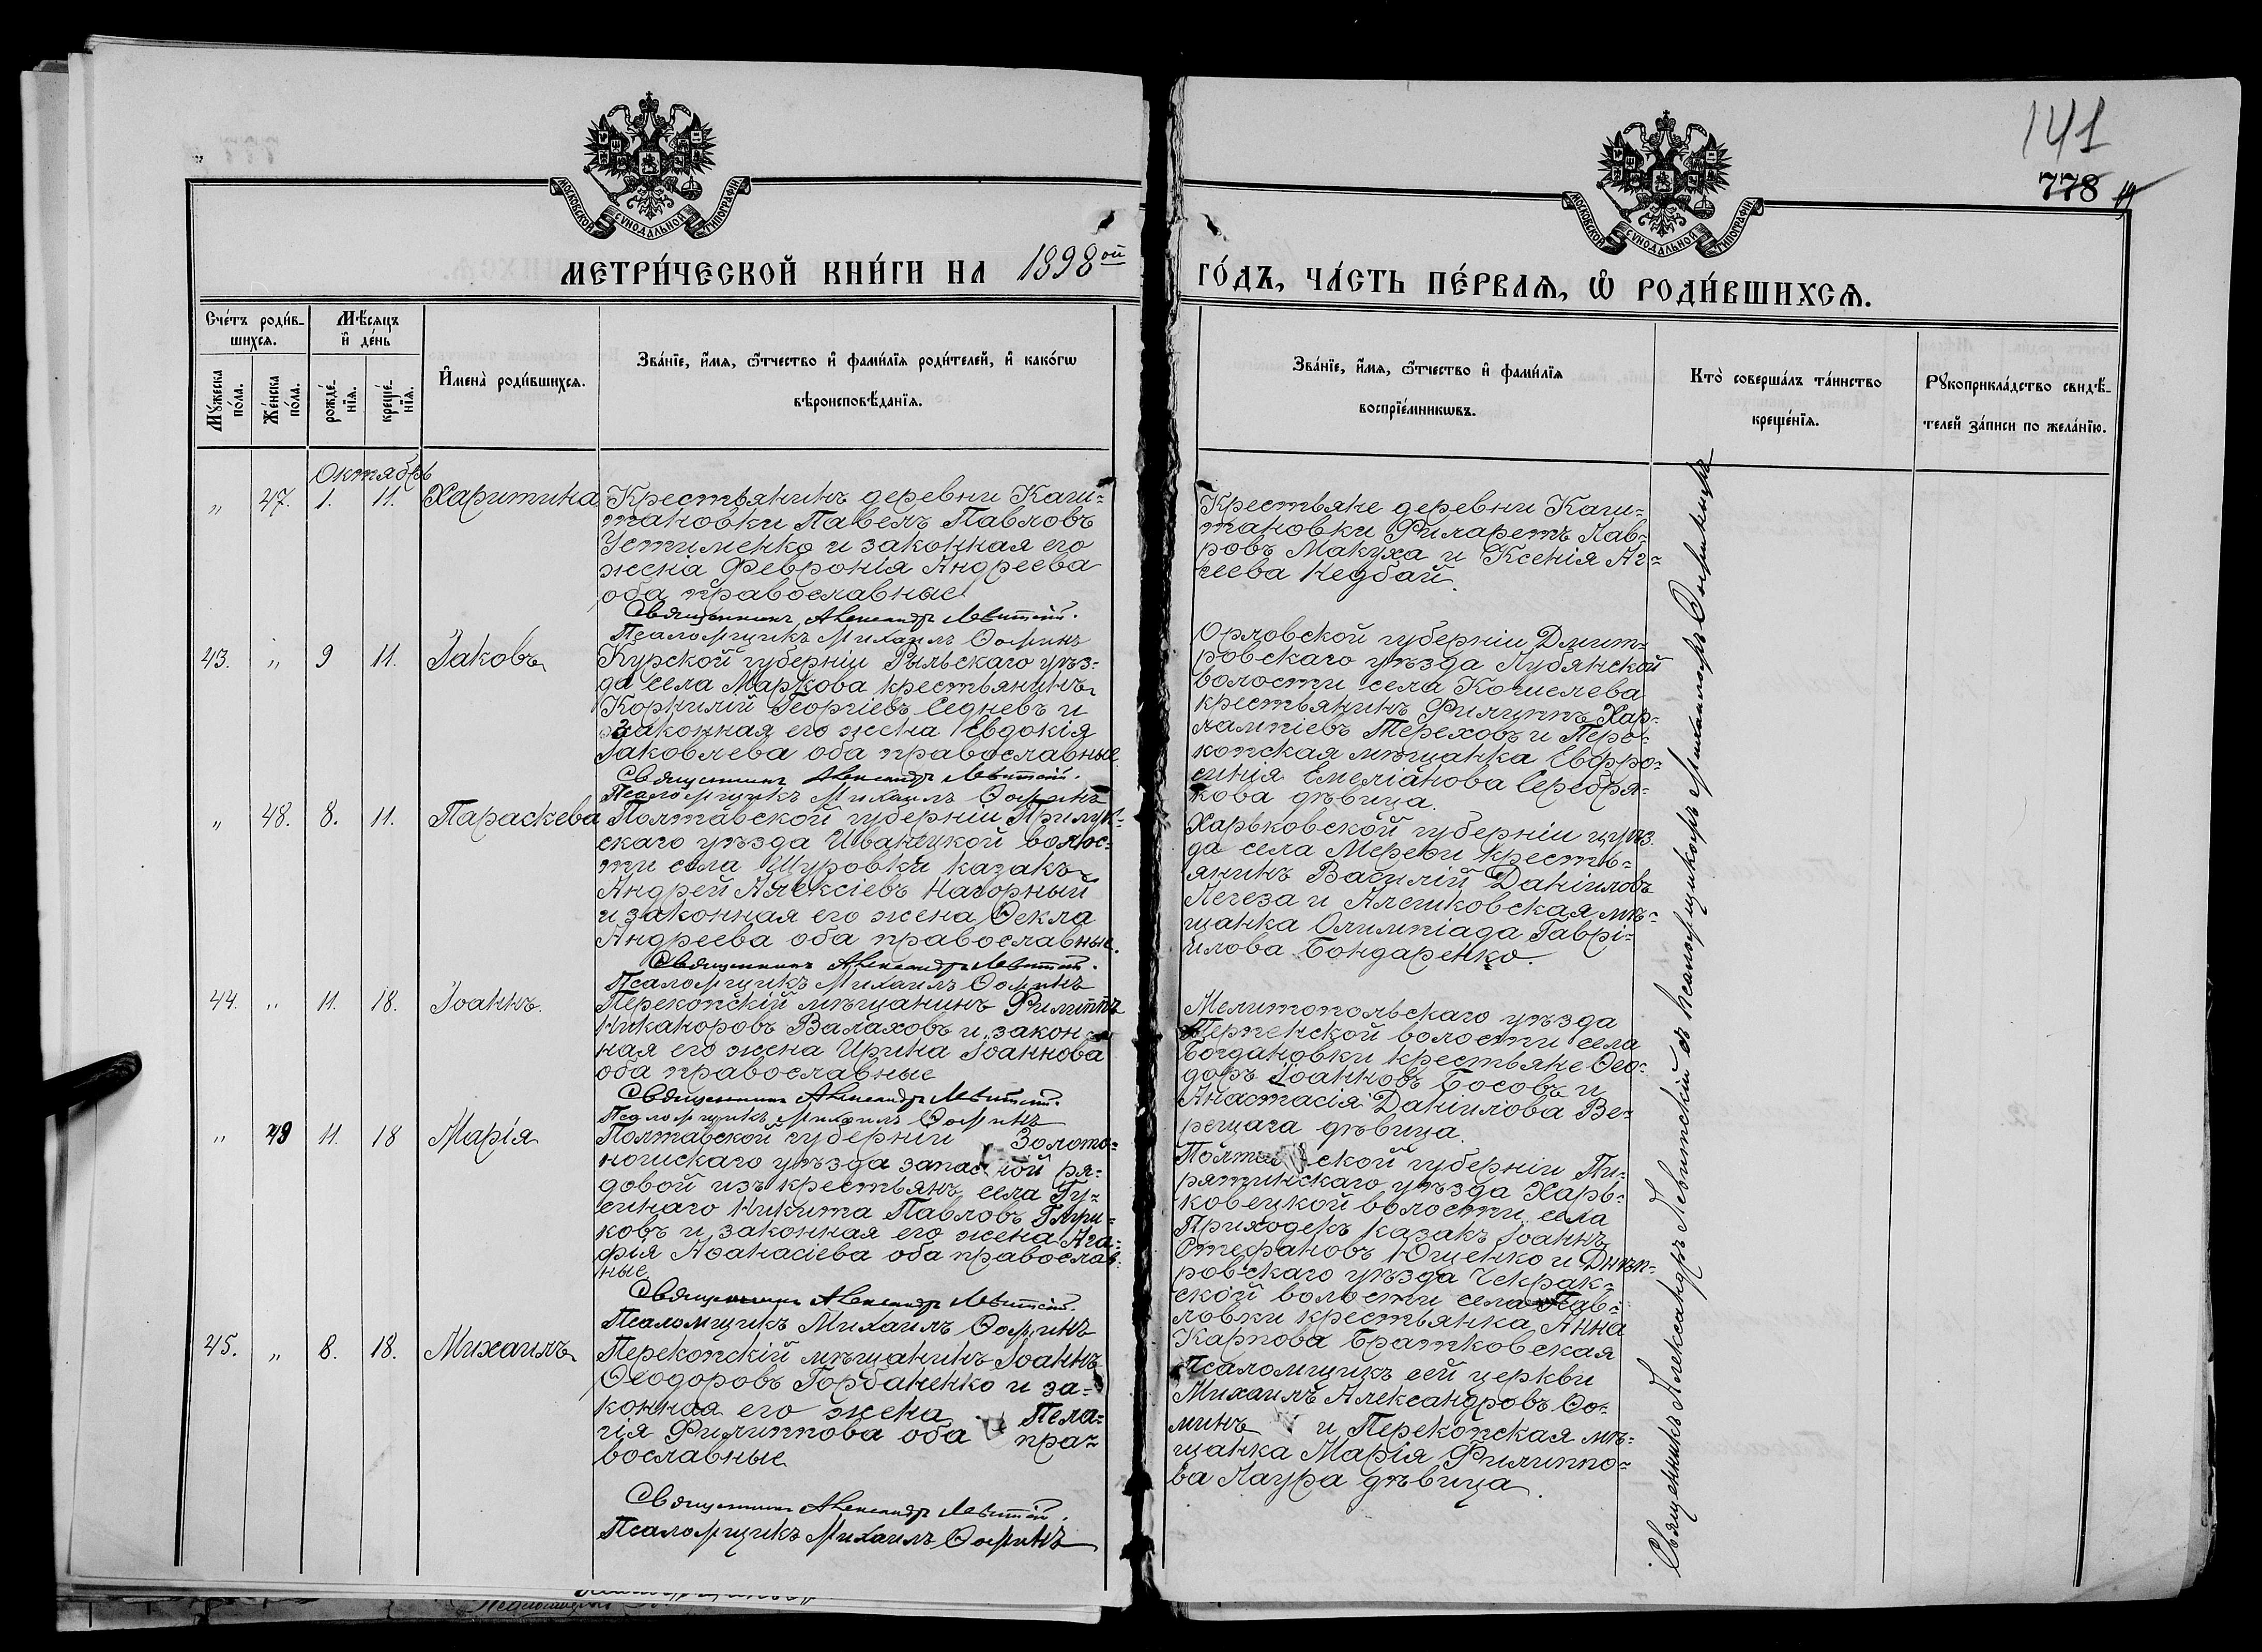 141
778
МОСКОВСКОЙ СѴНОДАЛЬНОЙ ТИПОГРАФІИ
МОСКОВСКОЙ СѴНОДАЛЬНОЙ ТИПОГРАФІИ
МЕТРИ́ЧЕСКОЙ КНИ́ГИ НА 1898ой
ГО́ДЪ, ЧА́СТЬ ПЕ́РВАѦ, Ѽ РОДИ́ВШИХСѦ.
Сче́тъ роди́в-
шихсѧ.
Мѣ́сѧцъ
и҆ де́нь
Мꙋ́жеска по́ла.
Же́нска по́ла.
рожде́-
нїѧ.
креще́-
нїѧ.
И҆мена̀ роди́вшихсѧ.
Зва́нїе, и҆́мѧ, ѻ҆́тчество и҆ фами́лїѧ роди́телей, и҆ како́гѡ
вѣроисповѣ́данїѧ.
Зва́нїе, и҆́мѧ, ѻ҆́тчество и҆ фами́лїѧ
воспрїе́мникѡвъ.
Кто̀ соверша́лъ та́инство
креще́нїѧ.
Рꙋкоприкла́дство свидѣ́-
телей за́писи по жела́нїю.
Октябрь
" 47. 1. 11. Харитина
Крестьянинъ деревни Каш-
тановки Павелъ Павловъ
Устименко и законная его
жена Феврония Андреева
оба православные
Священникъ Александръ Левитскій.
Псаломщикъ Михаилъ Ѳоминъ
Крестьяне деревни Каш-
тановки Филаретъ Лав-
ровъ Макуха и Ксенія Аг-
геева Недбай.
43. " 9 11. Іаковъ
Курской губерніи Рыльскаго уѣз-
да села Маркова крестьянинъ
Корнилій Георгіевъ Седневъ и
законная его жена Евдокія
Іаковлева оба православные.
Священникъ Александръ Левитскій.
Псаломщикъ Михаилъ Ѳоминъ
Орловской губерніи Дмит-
ровскаго уѣзда Лубянской
волости села Кошелева
крестьянинъ Филиппъ Хар-
лампіевъ Тереховъ и Пере-
копская мѣщанка Евфро-
синія Емеліанова Серебря-
кова дѣвица.
" 48. 8. 11. Параскева
Полтавской губерніи Прилук-
скаго уѣзда Иванецкой волос-
ти села Щуровки казакъ
Андрей Алексіевъ Нагорный
и законная его жена Ѳекла
Андреева оба православные.
Священникъ Александръ Левитскій.
Псаломщикъ Михаилъ Ѳоминъ
Харьковской губерніи и уѣз-
да села Мерефи кресть-
янинъ Василій Даніиловъ
Легеза и Алешковская мѣ-
щанка Олимпіада Гаврі-
илова Бондаренко.
44. " 11. 18. Іоаннъ.
Перекопскій мѣщанинъ Филиппъ
Никаноровъ Валаховъ и закон-
ная его жена Ирина Іоаннова
оба православные
Священникъ Александръ Левитскій.
Псаломщикъ Михаилъ Ѳоминъ
Мелитопольскаго уѣзда
Терпенской волости села
Богдановки крестьяне Ѳео-
доръ Іоанновъ Босовъ и
Анастасія Даніилова Ве-
рещага дѣвица.
" 49 11. 18 Марія
Полтавской губерніи Золото-
ношскаго уѣзда запасной ря-
довой изъ крестьянъ села Гу-
синаго Никита Павловъ
ковъ и законная его жена Ага-
фія Аѳанасіева оба православ-
ные
Священникъ Александръ Левитскій.
Псаломщикъ Михаилъ Ѳоминъ
Полтавской губерніи Пи-
рятинскаго уѣзда Харь-
ковецкой волости села
Приходекъ казакъ Іоаннъ
Стефановъ Ющенко и Днѣп-
ровскаго уѣзда Чекрак-
ской волости села Пав-
ловки крестьянка Анна
Карпова Братковская
45. " 8. 18. Михаилъ
Перекопскій мѣщанинъ Іоаннъ
Ѳеодоровъ Горбаненко и за-
конная его жена Пела-
гія Филиппова оба пра-
вославные
Священникъ Александръ Левитскій.
Псаломщикъ Михаилъ Ѳоминъ
Псаломщикъ сей церкви
Михаилъ Александровъ Ѳо-
минъ и Перекопская мѣ-
щанка Марія Филиппо-
ва Лаура дѣвица.
Священникъ Александръ Левитскій съ псаломщикомъ Михаиломъ Ѳоминымъ